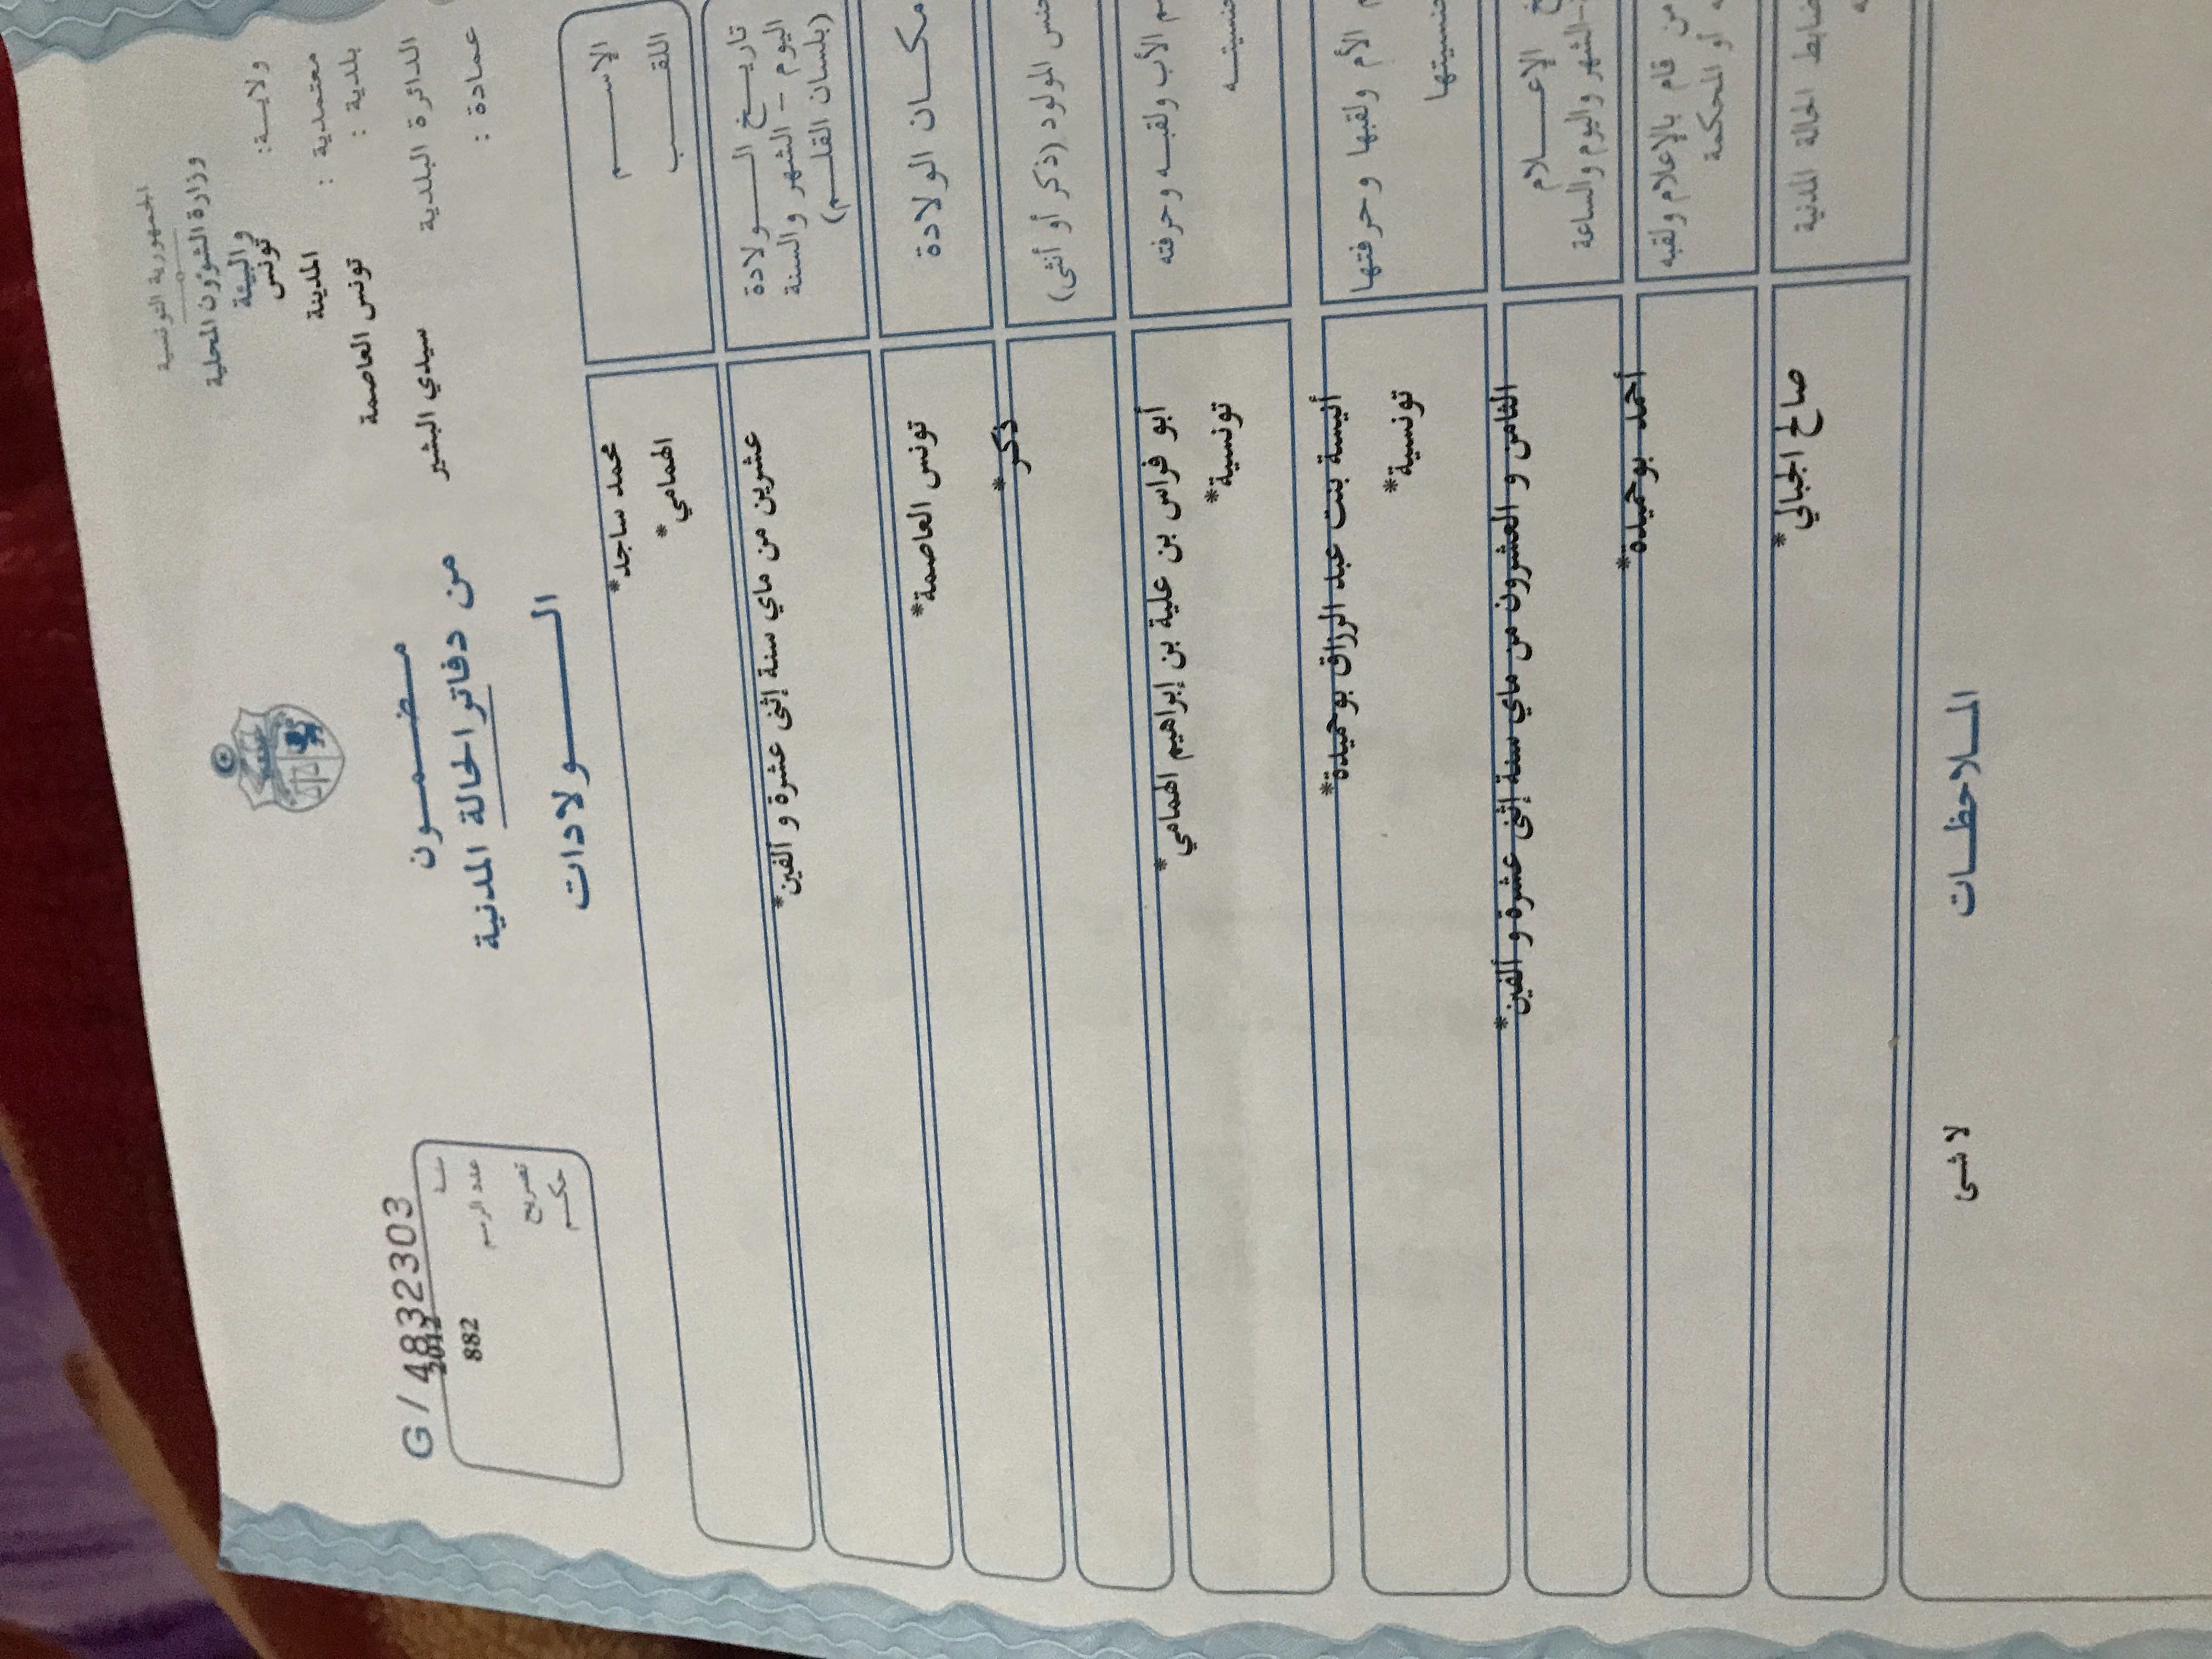 الجمهورية التونسية
وزارة الشؤون المحلية
والبيئة
ولاية: تونس
معتمدية : المدينة
بلدية : تونس العاصمة
الدائرة البلدية سيدي البشير
عمادة :
مضمون
من دفاتر الحالة المدنية
الولادات
G / 4832303
سنة 2012
عدد الرسم 882
تصريح
حكم
الإسم محمد ساجد*
اللقب الهمامي*
تاريخ الولادة
اليوم - الشهر والسنة
(بلسان القلم)
عشرين من ماي سنة إثنى عشرة و ألفين*
مكان الولادة تونس العاصمة*
المولود (ذكر أو أنثى) ذكر*
الأب ولقبه وحرفته أبو فراس بن علية بن إبراهيم الهمامي*
تونسية*
الأم ولقبها وحرفتها أنيسة بنت عبد الرزاق بوحميدة*
تونسية*
الإعلام
الشهر واليوم والساعة
الثامن و العشرون من ماي سنة إثنى عشرة و ألفين*
من قام بالإعلام ولقبه
أو المحكمة
أحمد بوحميدة*
الحالة المدنية صالح الجبالي*
الملاحظات
لا شئ